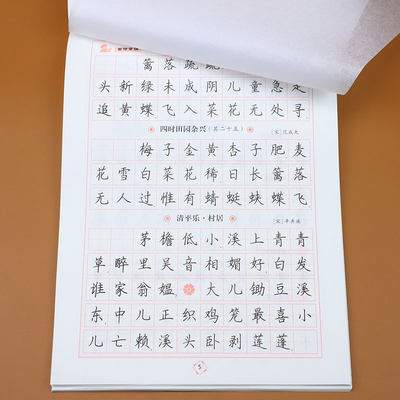 篱落疏疏
头新绿未成阴儿童急走
追黄蝶飞入菜花无处寻
四时田园杂兴(其二十五) [宋]范成大
梅子金黄杏子肥麦
花雪白菜花稀日长篱落
无人过惟有蜻蜓蛱蝶飞
清平乐·村居 [宋]辛弃疾
茅檐低小溪上青青
草醉里吴音相媚好白发
谁家翁媪大儿锄豆溪
东中儿正织鸡笼最喜小
儿亡赖溪头卧剥莲蓬
5